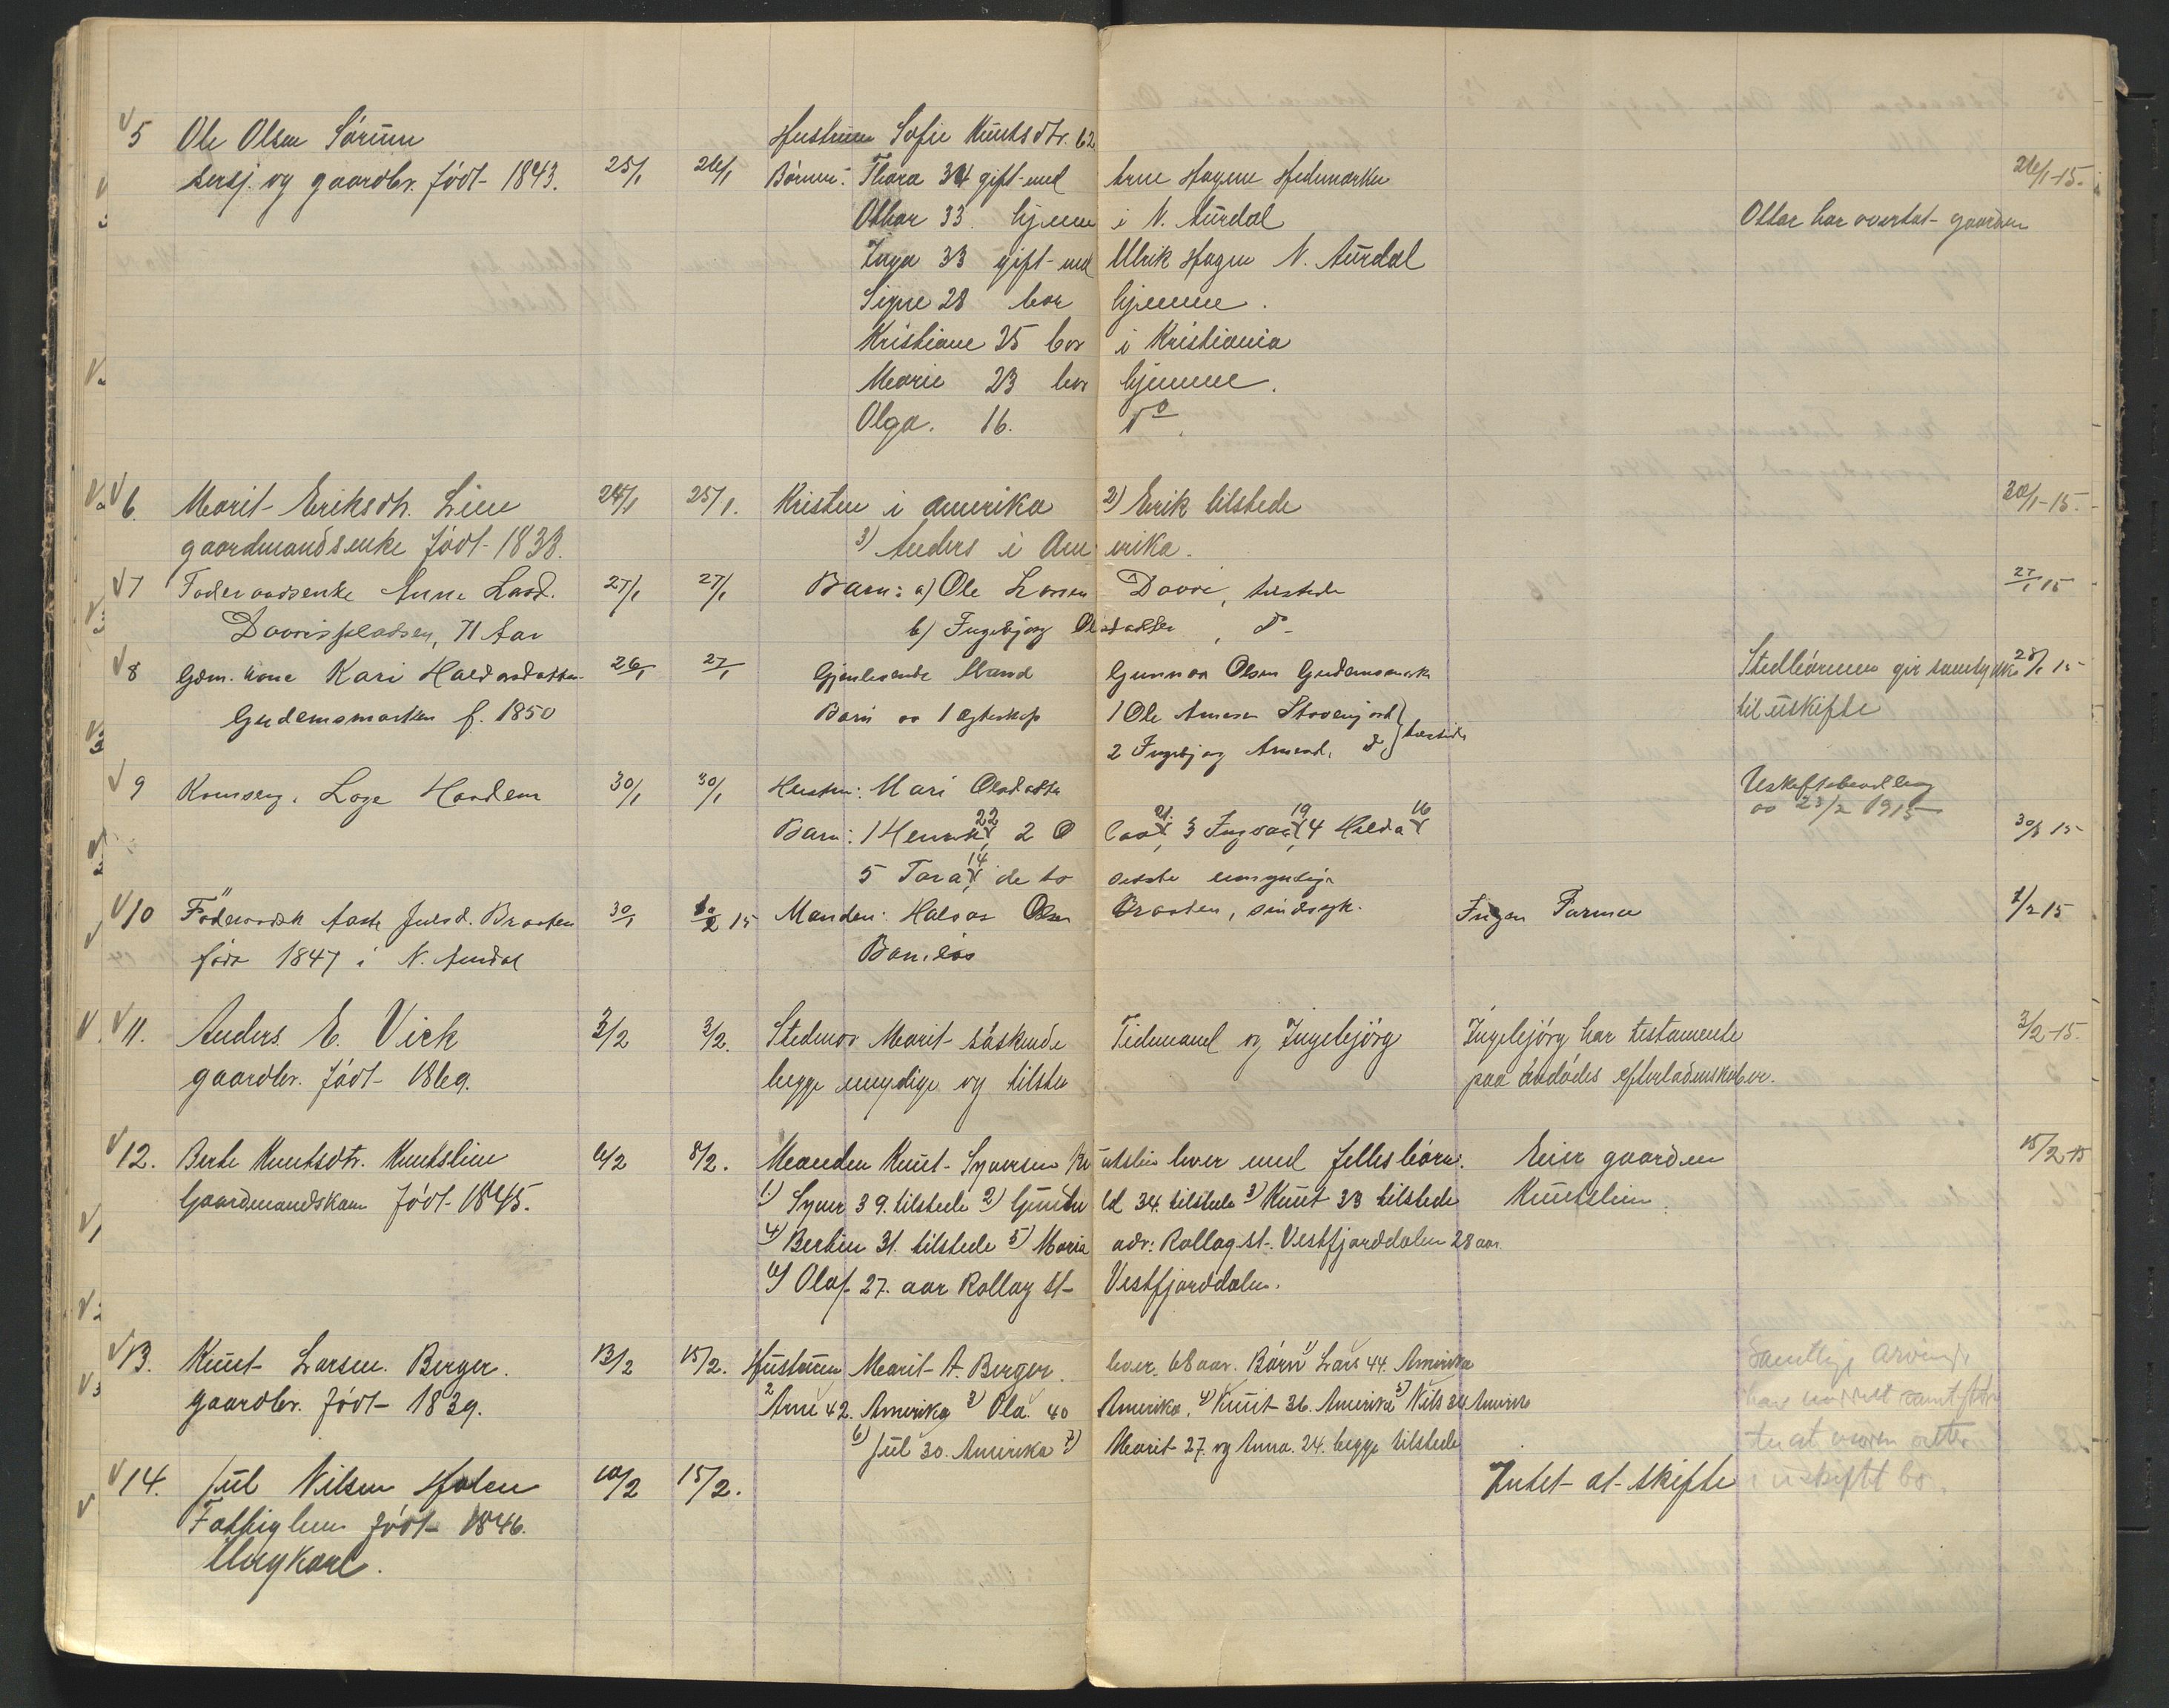 5 Ole Olsen Sörum Hustruen Sofie Knutsdtr. 62
sersj. og gaardbr. född 1843. 25/1 26/1 Börnene: Thora 34 gift med Arne Hagene Hedemarken 26/1-15.
Ottar 33. hjemme i N. Aurdal Ottar har overtat gaarden
Inga 33 gift med Ulrik Hagen N. Aurdal
Signe 28 bor hjemme.
Kristiane 25 bor i Kristiania
Marie 23 bor hjemme.
Olga. 16. do.
6. Marit Eriksdtr. Lien 24/1 25/1. Kristen i Amerika 2) Erik tilstede 30/1-15.
gaardmandsenke född 1838. 3) Anders i Amerika.
7 Föderaadsenke Anne Larsd. 27/1 27/1 Barn: a) Ole Larsen Dovre, tilstede 27/1 15
71 Aar b) Ingebjörg Olsdatter, do
8 Gdm. kone Kari Haldorsdatter 26/1 27/1 Gjenlevende Mand Gunnar Olsen Gudemsmarken Stedbörnene gir samtykke 28/1 15
Gudemsmarken f. 1850 Barn av 1 egteskap 1 Ole Arnesen til uskifte
2 Ingebjörg Arnesd. do } tilstede
9 30/1 30/1 Hustru: Mari Olsdatter Uskiftebevilling
av 23/2 1915
Barn: 1 Henrik 22, 2 Olav 21, 3 Ingvar 19, 4 Halda 16 30/1 15
5 Tora 14, de to sidste umyndige
10 Föderaadsk Aaste Julsd. Braaten 30/1 15 Manden: Halvor Olsen Braaten, sindsyk. Ingen Formue 1/2 15
född 1847 i N. Aurdal Barnlös
11. Anders E. Vick 3/2 3/2. Stedmor Marit söskende Tidemand og Ingebjörg Ingebjörg har testamente 3/2-15.
gaardbr. född 1869. begge myndige og tilstede paa avdödes efterladenskaber.
12. Berte Knutsdtr. Knutslien 6/2 8/2. Manden Knut Syversen Knutslien lever med fellesbörn. Eier gaarden 15/2 15
Gaardmandskone född 1845. 1) Syver 39. tilstede 2) Gunhild 34. tilstede 3) Knut 33 tilstede Knutslien.
4) Bertine 31. tilstede 5) Maria adr: Rollag st. Vestfjorddalen 28 aar.
6) Olaf 27. aar Rollag st Vestfjorddalen.
13. Knut Larsen Berger. 13/2 15/2. Hustruen Marit A. Berger. lever 68 aar. Börn 1) Lars 44. Amerika Samtlige arvinger
gaardbr. född 1839. 2 Arne 42. Amerika 3) Ola 40 Amerika. 4) Knut 36. Amerika 5) Nils 34 Amerika
6) Jul 30. Amerika 7) Marit 27. og Anna. 24. begge tilstede til at moren sitter
14. Jul Nilsen Holen 10/2 15/2. Intet at skifte i uskiftet bo.
Fattiglem född 1846.
Ungkarl.